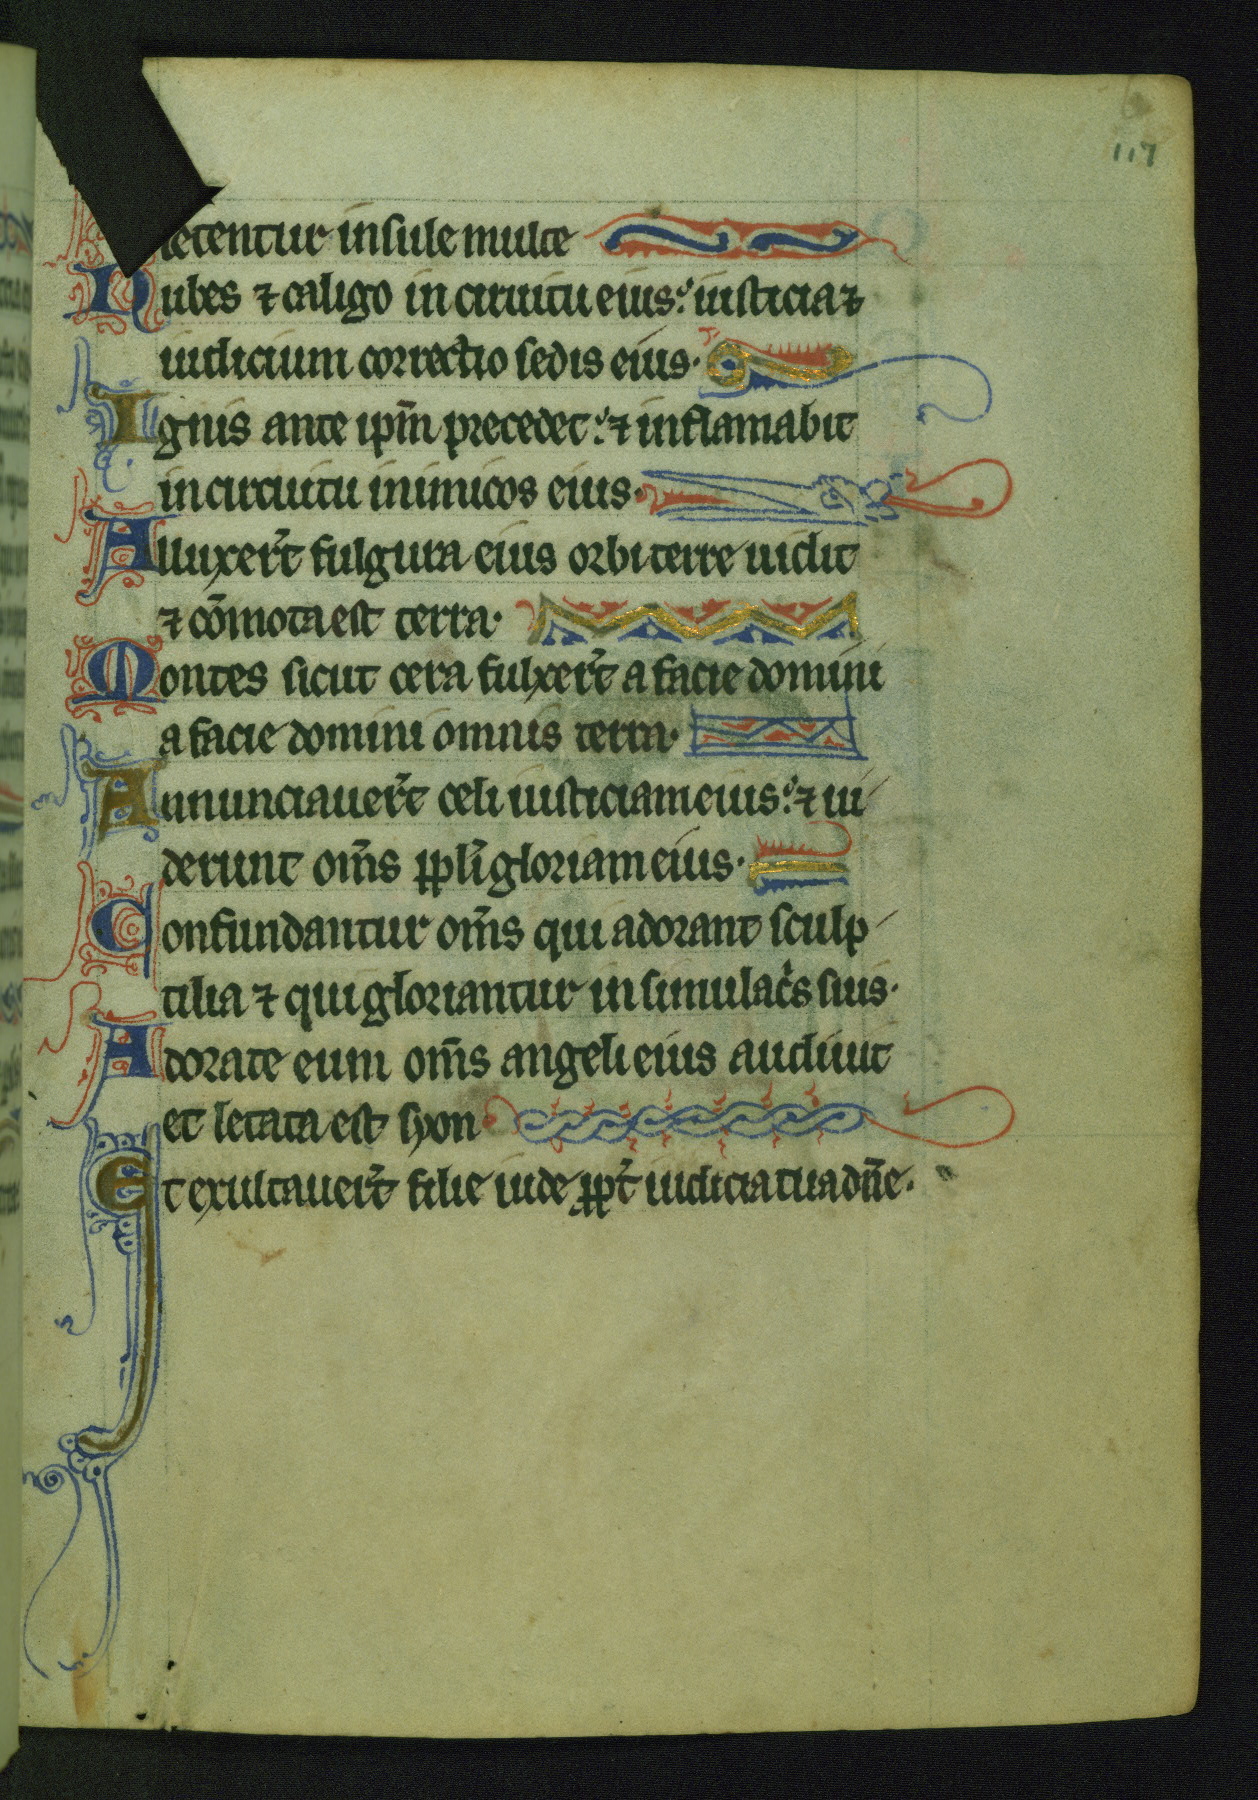 117
letentur insule multe
Nubes ⁊ caligo in circuitu eius: iusticia ⁊
iudicium correctio sedis eius.
Ignis ante ip̄m precedet: ⁊ inflamabit
in circuitu inimicos eius.
Alluxer̄t fulgura eius orbi terre uidit
⁊ cōmota est terra.
Montes sicut cera fulxer̄t a facie domini
a facie domini omnis terra.
Annunciauer̄t celi iusticiam eius: ⁊ ui
derunt om̄s ppl̄i gloriam eius.
Confundantur om̄s qui adorant sculp
tilia ⁊ qui gloriantur in simulac̄s suis.
Adorate eum om̄s angeli eius audiuit
et letata est syon
Et exultauer̄t filie iude pp̄t iudicia tua dn̄e.